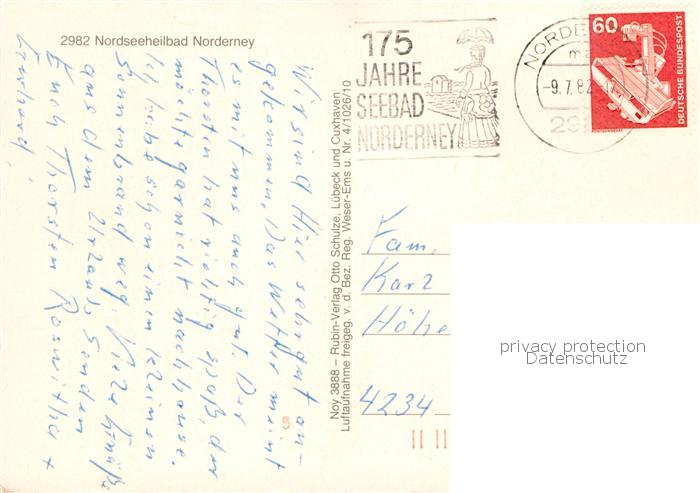 2982 Nordseeheilbad Norderney
175
JAHRE
SEEBAD
NORDERNEY
NORDE
-9.7.82-17
60
DEUTSCHE BUNDESPOST
Wir sind Hier sehr gut an-
gekommen, Das Wetter meint
es mit uns auch gut. Der
Thorsten hat richtig spaß, der
möchte garnicht nachhause.
Ich habe schon einen kleinen
Sonnenbrand weg. Viele Grüße
aus dem Urlaub, senden
Euch Thorsten Roswitha +
Gerhard,
Noy 3888 – Rubin-Verlag Otto Schulze, Lübeck und Cuxhaven
Luftaufnahme freigeg. v. d. Bez. Reg. Weser-Ems u. Nr. 4/1026/10
Fam.
Karl
Höhe
4234
9
privacy protection
Datenschutz